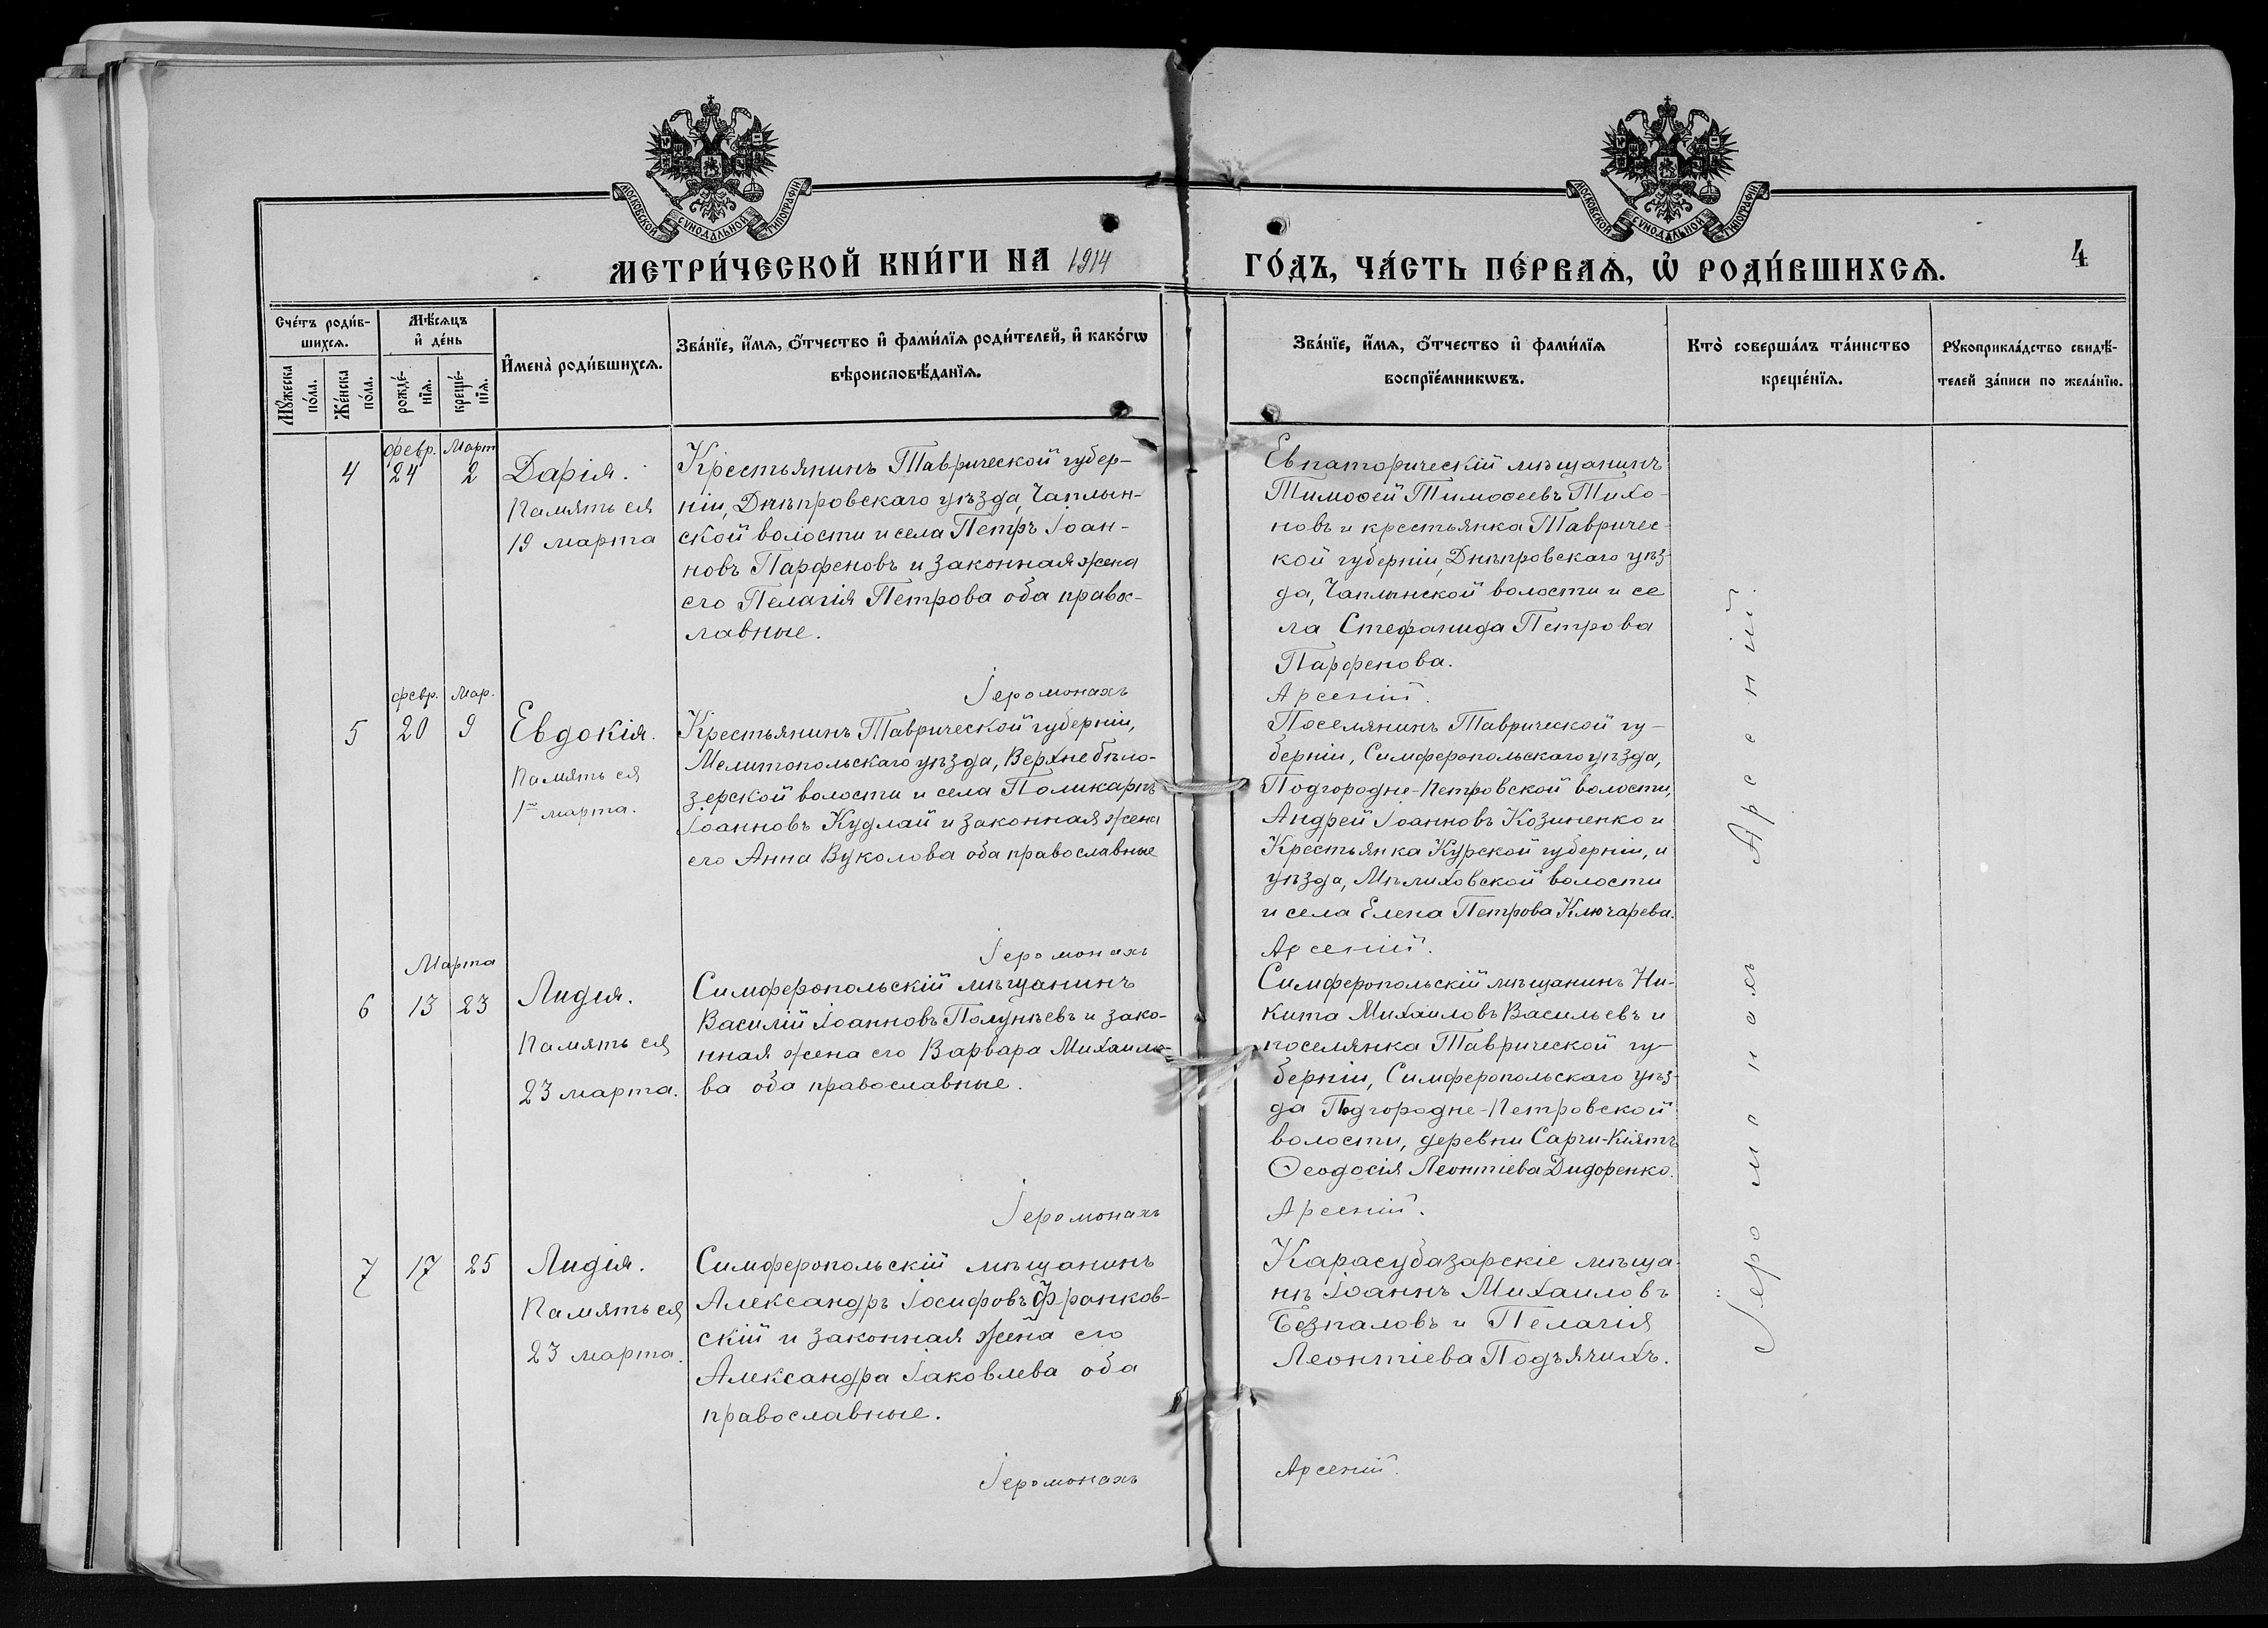 МОСКОВСКОЙ СУНОДАЛЬНОЙ ТИПОГРАФІИ
МОСКОВСКОЙ СУНОДАЛЬНОЙ ТИПОГРАФІИ
МЕТРИ́ЧЕСКОЙ КНИ́ГИ НА 1914
ГО́ДЪ, ЧА́СТЬ ПЕ́РВАѦ, Ѡ҆ РОДИ́ВШИХСѦ.
4
Сче́тъ роди́в-
шихсѧ.
Мѣ́сѧцъ
и҆ де́нь
Мꙋ́жеска
по́ла.
Же́нска
по́ла.
рожде́-
нїѧ.
креще́-
нїѧ.
И҆мена̀ роди́вшихсѧ.
Зва́нїе, и҆́мѧ, ѻ҆́тчество и҆ фами́лїѧ роди́телей, и҆ како́гѡ
вѣроисповѣ́данїѧ.
Зва́нїе, и҆́мѧ, ѻ҆́тчество и҆ фами́лїѧ
воспрїе́мникѡвъ.
Кто̀ соверша́лъ та́инство
креще́нїѧ.
Рꙋкоприкла́дство свидѣ́-
телей за́писи по жела́нїю.
февр. Март
4 24 2
Дарія.
Память ея
19 марта
Крестьянинъ Таврической губер-
ніи, Днѣпровскаго уѣзда, Чаплын-
ской волости и села Петръ Іоан-
новъ Парфеновъ и законная жена
его Пелагія Петрова оба правос-
лавные.
Іеромонахъ
Евпаторическій мѣщанинъ
Тимоѳей Тимоѳеевъ Тихо-
новъ и крестьянка Тавричес-
кой губерніи, Днѣпровскаго уѣз-
да, Чаплынской волости и се
ла Стефанида Петрова
Парфенова.
Арсеній.
февр. Мар.
5 20 9
Евдокія.
Память ея
1го марта.
Крестьянинъ Таврической губерніи,
Мелитопольскаго уѣзда, Верхнебѣло-
зерской волости и села Поликарпъ
Іоанновъ Кудлай и законная жена
его Анна Вуколова оба православные
Іеромонахъ
Поселянинъ Таврической гу-
берніи, Симферопольскаго уѣзда,
Подгородне-Петровской волости,
Андрей Іоанновъ Козиненко и
Крестьянка Курской губерніи, и
уѣзда, Мѣлиховской волости
и села Елена Петрова Ключарева.
Арсеній.
Марта
6 13 23
Лидія.
Память ея
23 марта.
Симферопольскій мѣщанинъ
Василій Іоанновъ Полунѣевъ и зако-
нная жена его Варвара Михаило-
ва оба православные.
Іеромонахъ
Симферопольскій мѣщанинъ Ни-
кита Михаиловъ Васильевъ и
поселянка Таврической гу-
берніи, Симферопольскаго уѣз-
да Подгородне-Петровской
волости, деревни Сарчи-Кіятъ
Ѳеодосія Леонтіева Дидоренко.
Арсеній.
7 17 25
Лидія.
Память ея
23 марта.
Симферопольскій мѣщанинъ
Александръ Іосифовъ Франков-
скій и законная жена его
Александра Іаковлева оба
православные.
Іеромонахъ
Карасубазарскіе мѣща-
нѣ Іоаннъ Михаиловъ
Безпаловъ и Пелагія
Леонтіева Подъячихъ.
Арсеній.
Іеромонахъ Арсеній.